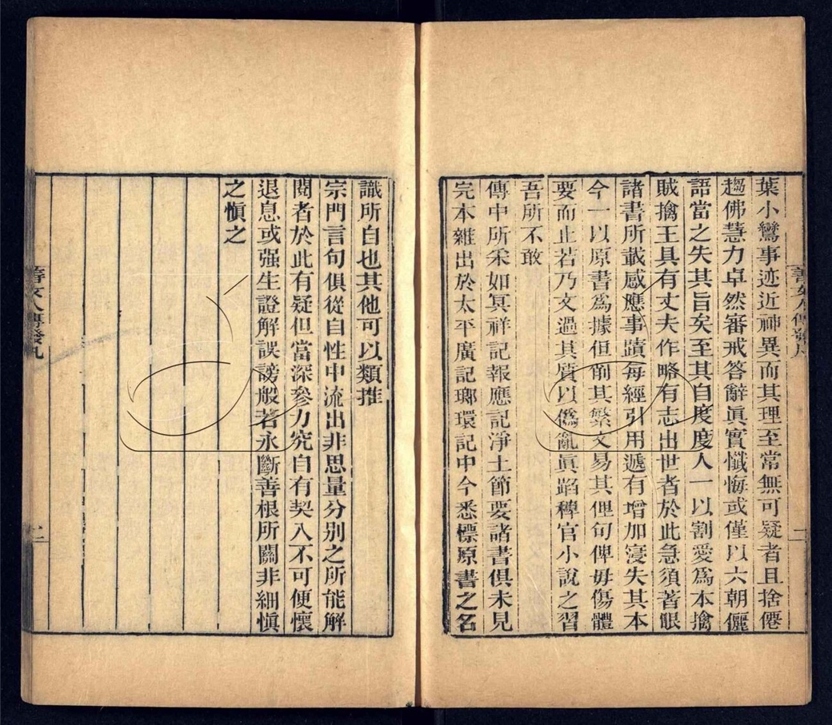 葉小鸞事迹近神異而其理至常無可疑者且捨僊
趨佛慧力卓然審戒答辭眞實懺悔或僅以六朝儷
語當之失其旨矣至其自度度人一以割愛爲本擒
賊擒王具有丈夫作略有志出世者於此急須著眼
諸書所載感應事蹟每經引用遞有增加寖失其本
今一以原書爲據但節其繁文易其俚句俾毋傷體
要而止若乃文過其質以僞亂眞蹈稗官小說之習
吾所不敢
傳中所采如冥祥記報應記淨土節要諸書俱未見
完本雜出於太平廣記瑯環記中今悉標原書之名
識所自也其他可以類推
宗門言句俱從自性中流出非思量分別之所能解
閱者於此有疑但當深參力究自有契入不可便懷
退息或强生證解誤謗般若永斷善根所關非細愼
之愼之
善女人傳發凡
二